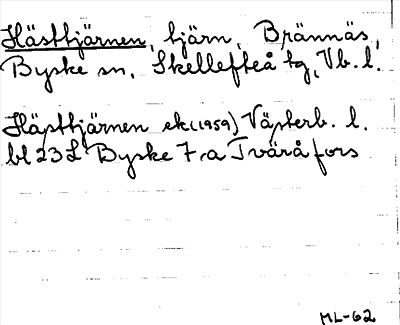 Hästtjärnen, tjärn, Brännäs,
Byske sn, Skellefteå tg, Vb. l.
Hästtjärnen ek (1959) Västerb. l.
bl 23 L Byske 7, a Tvärå fors
ML-62